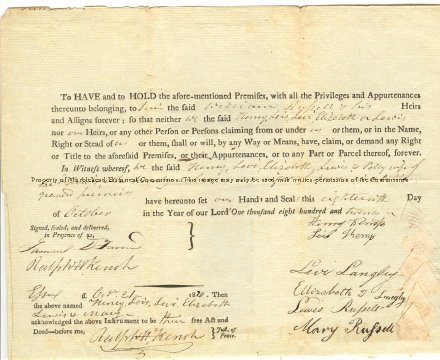 To HAVE and to HOLD the afore-mentioned Premiſes, with all the Privileges and Appurtenances
thereunto belonging, to him the said William Russell & his Heirs
and Aſſigns forever; so that neither we the said Henry, Levi, Elizabeth or Lewis,
nor our Heirs, or any other Person or Persons claiming from or under us or them, or in the Name,
Right or Stead of us or them, shall or will, by any Way or Means, have, claim, or demand any Right
or Title to the aforesaid Premiſes, or their Appurtenances, or to any Part or Parcel thereof, forever.
In Witneſs whereof, we the said Henry, Levi, Elizabeth, Lewis & Polly wife of
the
have hereunto set our Hand and Seal this eighteenth Day
of October in the Year of our Lord One thousand eight hundred and twenty
Signed, sealed, and delivered,
in Preſence of us
Samuel
Ralph H French
Henry
Levi Langley
Elizabeth Langley
Lewis Russell
Mary Russell
Essex Octr 21 1820. Then
the above named Henry, Levi, Elizabeth
Lewis & Mary
acknowledged the above Inſtrument to be their free Act and
Deed—before me, Ralph H French Juſt. of Peace.